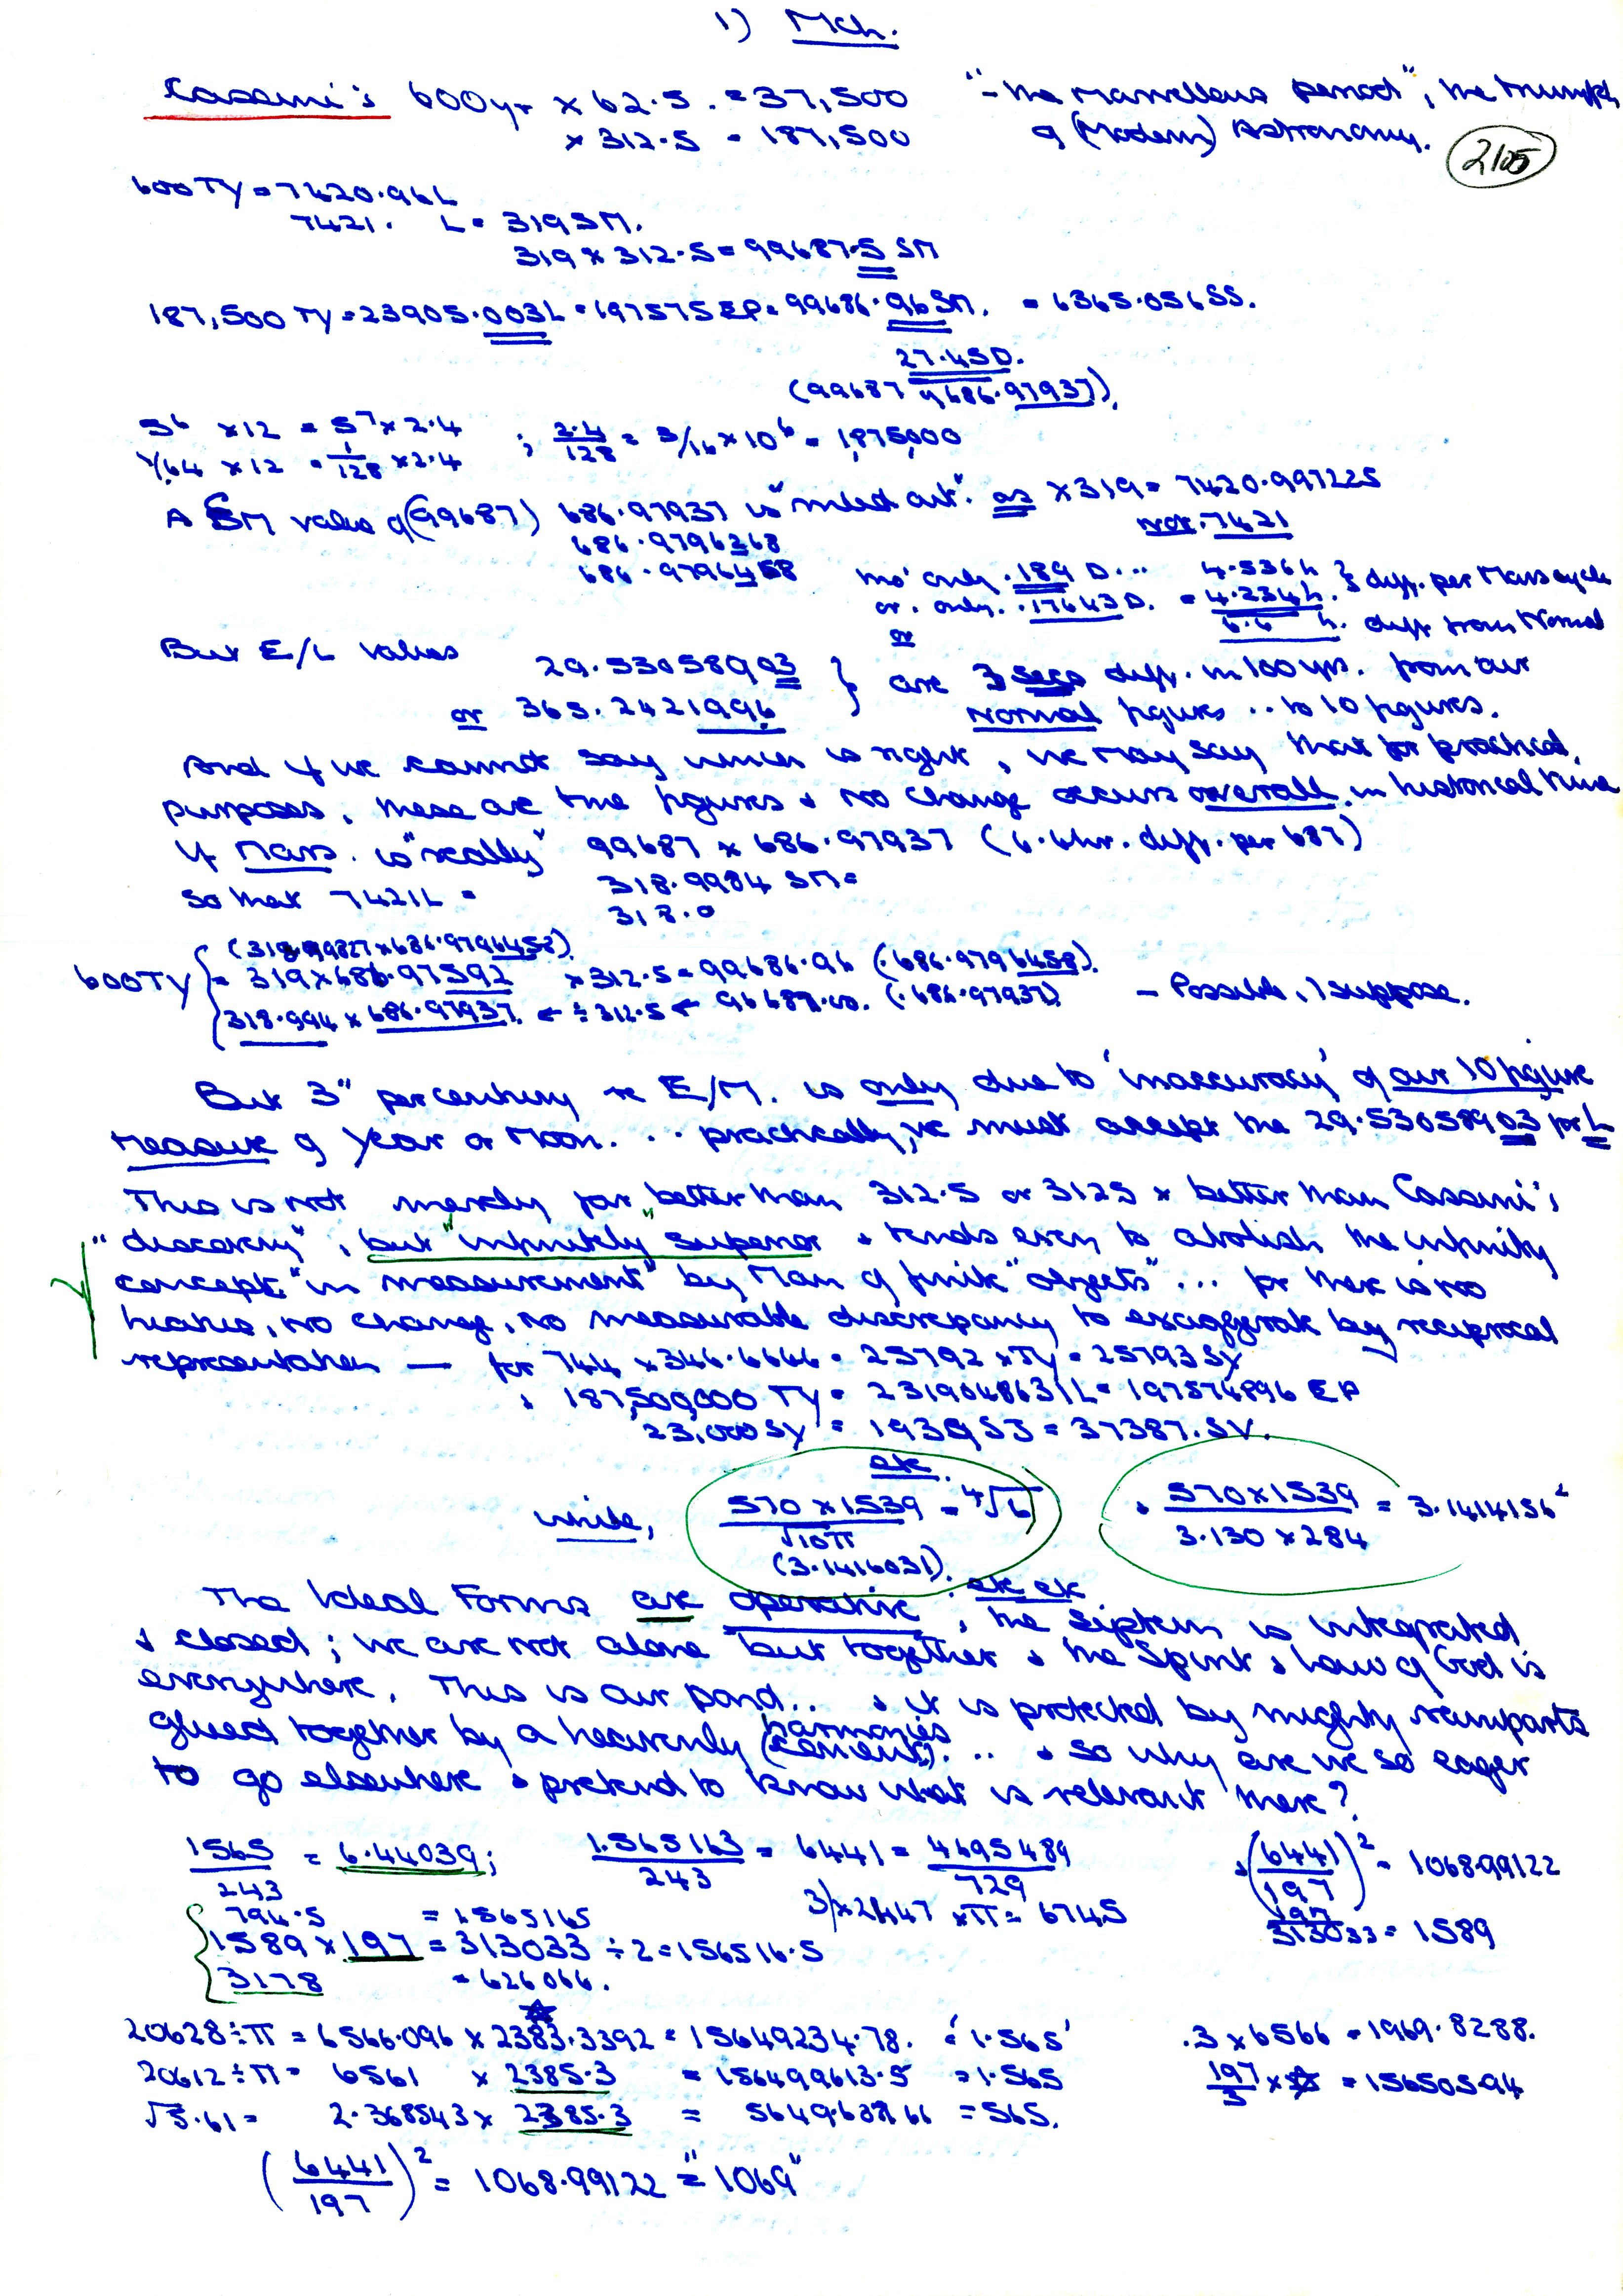 1) Mch.
Cassini's 600yr × 62.5. = 37,500 "- the marvellous period", the triumph
× 312.5 = 187,500 of (Modern) Astronomy.
2105
600TY = 7420.96L
7421. L = 319SM.
319 × 312.5 = 99687.5 SM
187,500 TY = 23905.003L = 197575EP = 99686.96SM. = 6365.056SS.
27.45D.
(99687 9686.97937).
5⁶ ×12 = 5⁷ × 2.4 ; 2.4/128 = 3/16 × 10⁶ = 1,875,000
1/64 × 12 = 1/128 × 2.4
A SM value of (99687) 686.97937 is "ruled out". as × 319 = 7420.997225
not 7421
686.9796368
686.9796458 tho' only .189 D... 4.536h } diff. per Mars cycle
or. only. .17643D. = 4.234h.
6.6 h. diff from Normal
or
But E/L values 29.53058903 } are 3 secs diff. in 100 yrs. from our
or 365.2421996 Normal figures .. to 10 figures.
And if we cannot say which is right, we may say that for practical
purposes, these are true figures & no change occurs overall in historical time
If Mars. is "really" 99687 × 686.97937 (6.6hr. diff. per 687)
So that 7421L = 318.9984 SM =
318.0
(318.99827×686.9796458)
600TY { = 319×686.97592 ×312.5 = 99686.96 (.686.9796458).
318.994 × 686.97937. ← ÷ 312.5 ← 99687.00. (.686.97937) - Possible, I suppose.
But 3" per century re E/M. is only due to 'inaccuracy' of our 10 figure
measure of Year or Moon. .. practically, we must accept the 29.53058903 for L
This is not merely far better than 312.5 or 3125 × better than Cassini's
"discovery", but "infinitely" superior & tends even to abolish the infinity
concept "in measurement" by Man of finite "objects" ... for there is no
hiatus, no change, no measurable discrepancy to exaggerate by reciprocal
representation — for 744 × 346.6666 = 25792 × TY = 25793SY
& 187,500,000 TY = 2319048631L = 197574896 EP
23,000SY = 1939SJ = 37387.SV.
etc.
while, 570×1539/√10π = ⁴√6 & 570×1539/3.130×284 = 3.1414156²
(3.1416031)
The Ideal Forms are operative; etc etc, the System is integrated
& closed; we are not alone but together & the Spirit & Law of God is
everywhere. This is our pond.. & it is protected by mighty ramparts
glued together by a heavenly harmonies (cement). ... & so why are we so eager
to go elsewhere & pretend to know what is relevant there?
1565/243 = 6.44039; 1.565163/243 = 6441 = 4695489/729 & (6441/197)² = 1068.99122
794.5 = 1.565165 3)×2147 ×π = 6745 197/313033 = 1589
1589 × 197 = 313033 ÷ 2 = 156516.5
3178 = 626066.
20628÷π = 6566.096 × 2383.3392 = 15649234.78. '1.565' .3 × 6566 = 1969.8288.
20612÷π = 6561 × 2385.3 = 156499613.5 = 1.565 197/3 × ☆ = 156505.94
√5.61 = 2.368543 × 2385.3 = 5649.6866 = 565.
(6441/197)² = 1068.99122 = "1069"